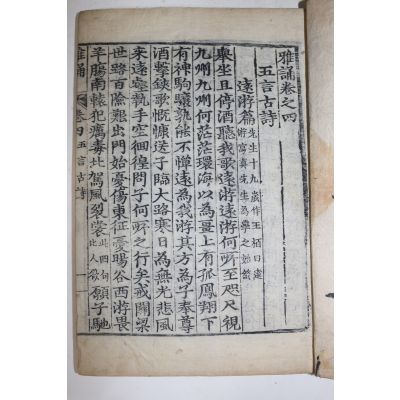 雅誦卷之四
五言古詩
遠游篇 先生十九歲作王栢曰
先生為學之始
舉坐且停酒聽我歌遠游遠游何所至咫尺視
九州九州何茫茫環海以為畺上有孤鳳翔下
有神駒驤孰能不憚遠為我游其方為子奉尊
酒擊鋏歌慨慷送子臨大路寒日為無光悲風
来遠壑執手空徊徨問子何所之行矣戒關梁
世路百險艱出門始憂傷東征憂暘谷西游畏
羊腸南轅犯癘毒北駕風裂裳 此四句 此人欲 願子馳
雅誦 卷四 五言古詩 一